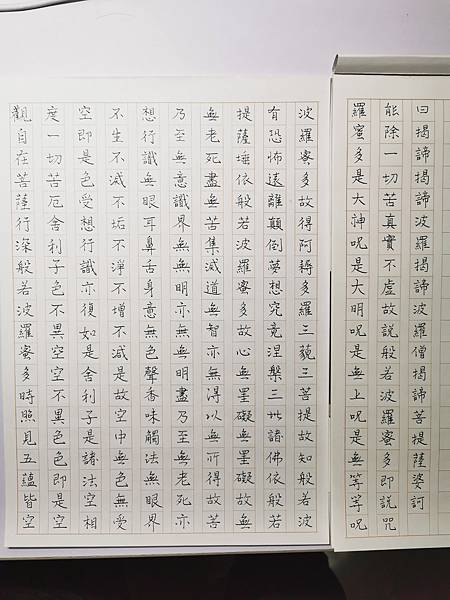 觀自在菩薩行深般若波羅蜜多時照見五蘊皆空
度一切苦厄舍利子色不異空空不異色色即是空
空即是色受想行識亦復如是舍利子是諸法空相
不生不滅不垢不淨不增不減是故空中無色無受
想行識無眼耳鼻舌身意無色聲香味觸法無眼界
乃至無意識界無無明亦無無明盡乃至無老死亦
無老死盡無苦集滅道無智亦無得以無所得故菩
提薩埵依般若波羅蜜多故心無罣礙無罣礙故無
有恐怖遠離顛倒夢想究竟涅槃三世諸佛依般若
波羅蜜多故得阿耨多羅三藐三菩提故知般若波
羅蜜多是大神呪是大明呪是無上呪是無等等呪
能除一切苦真實不虛故說般若波羅蜜多即說咒
曰揭諦揭諦波羅揭諦波羅僧揭諦菩提薩婆訶